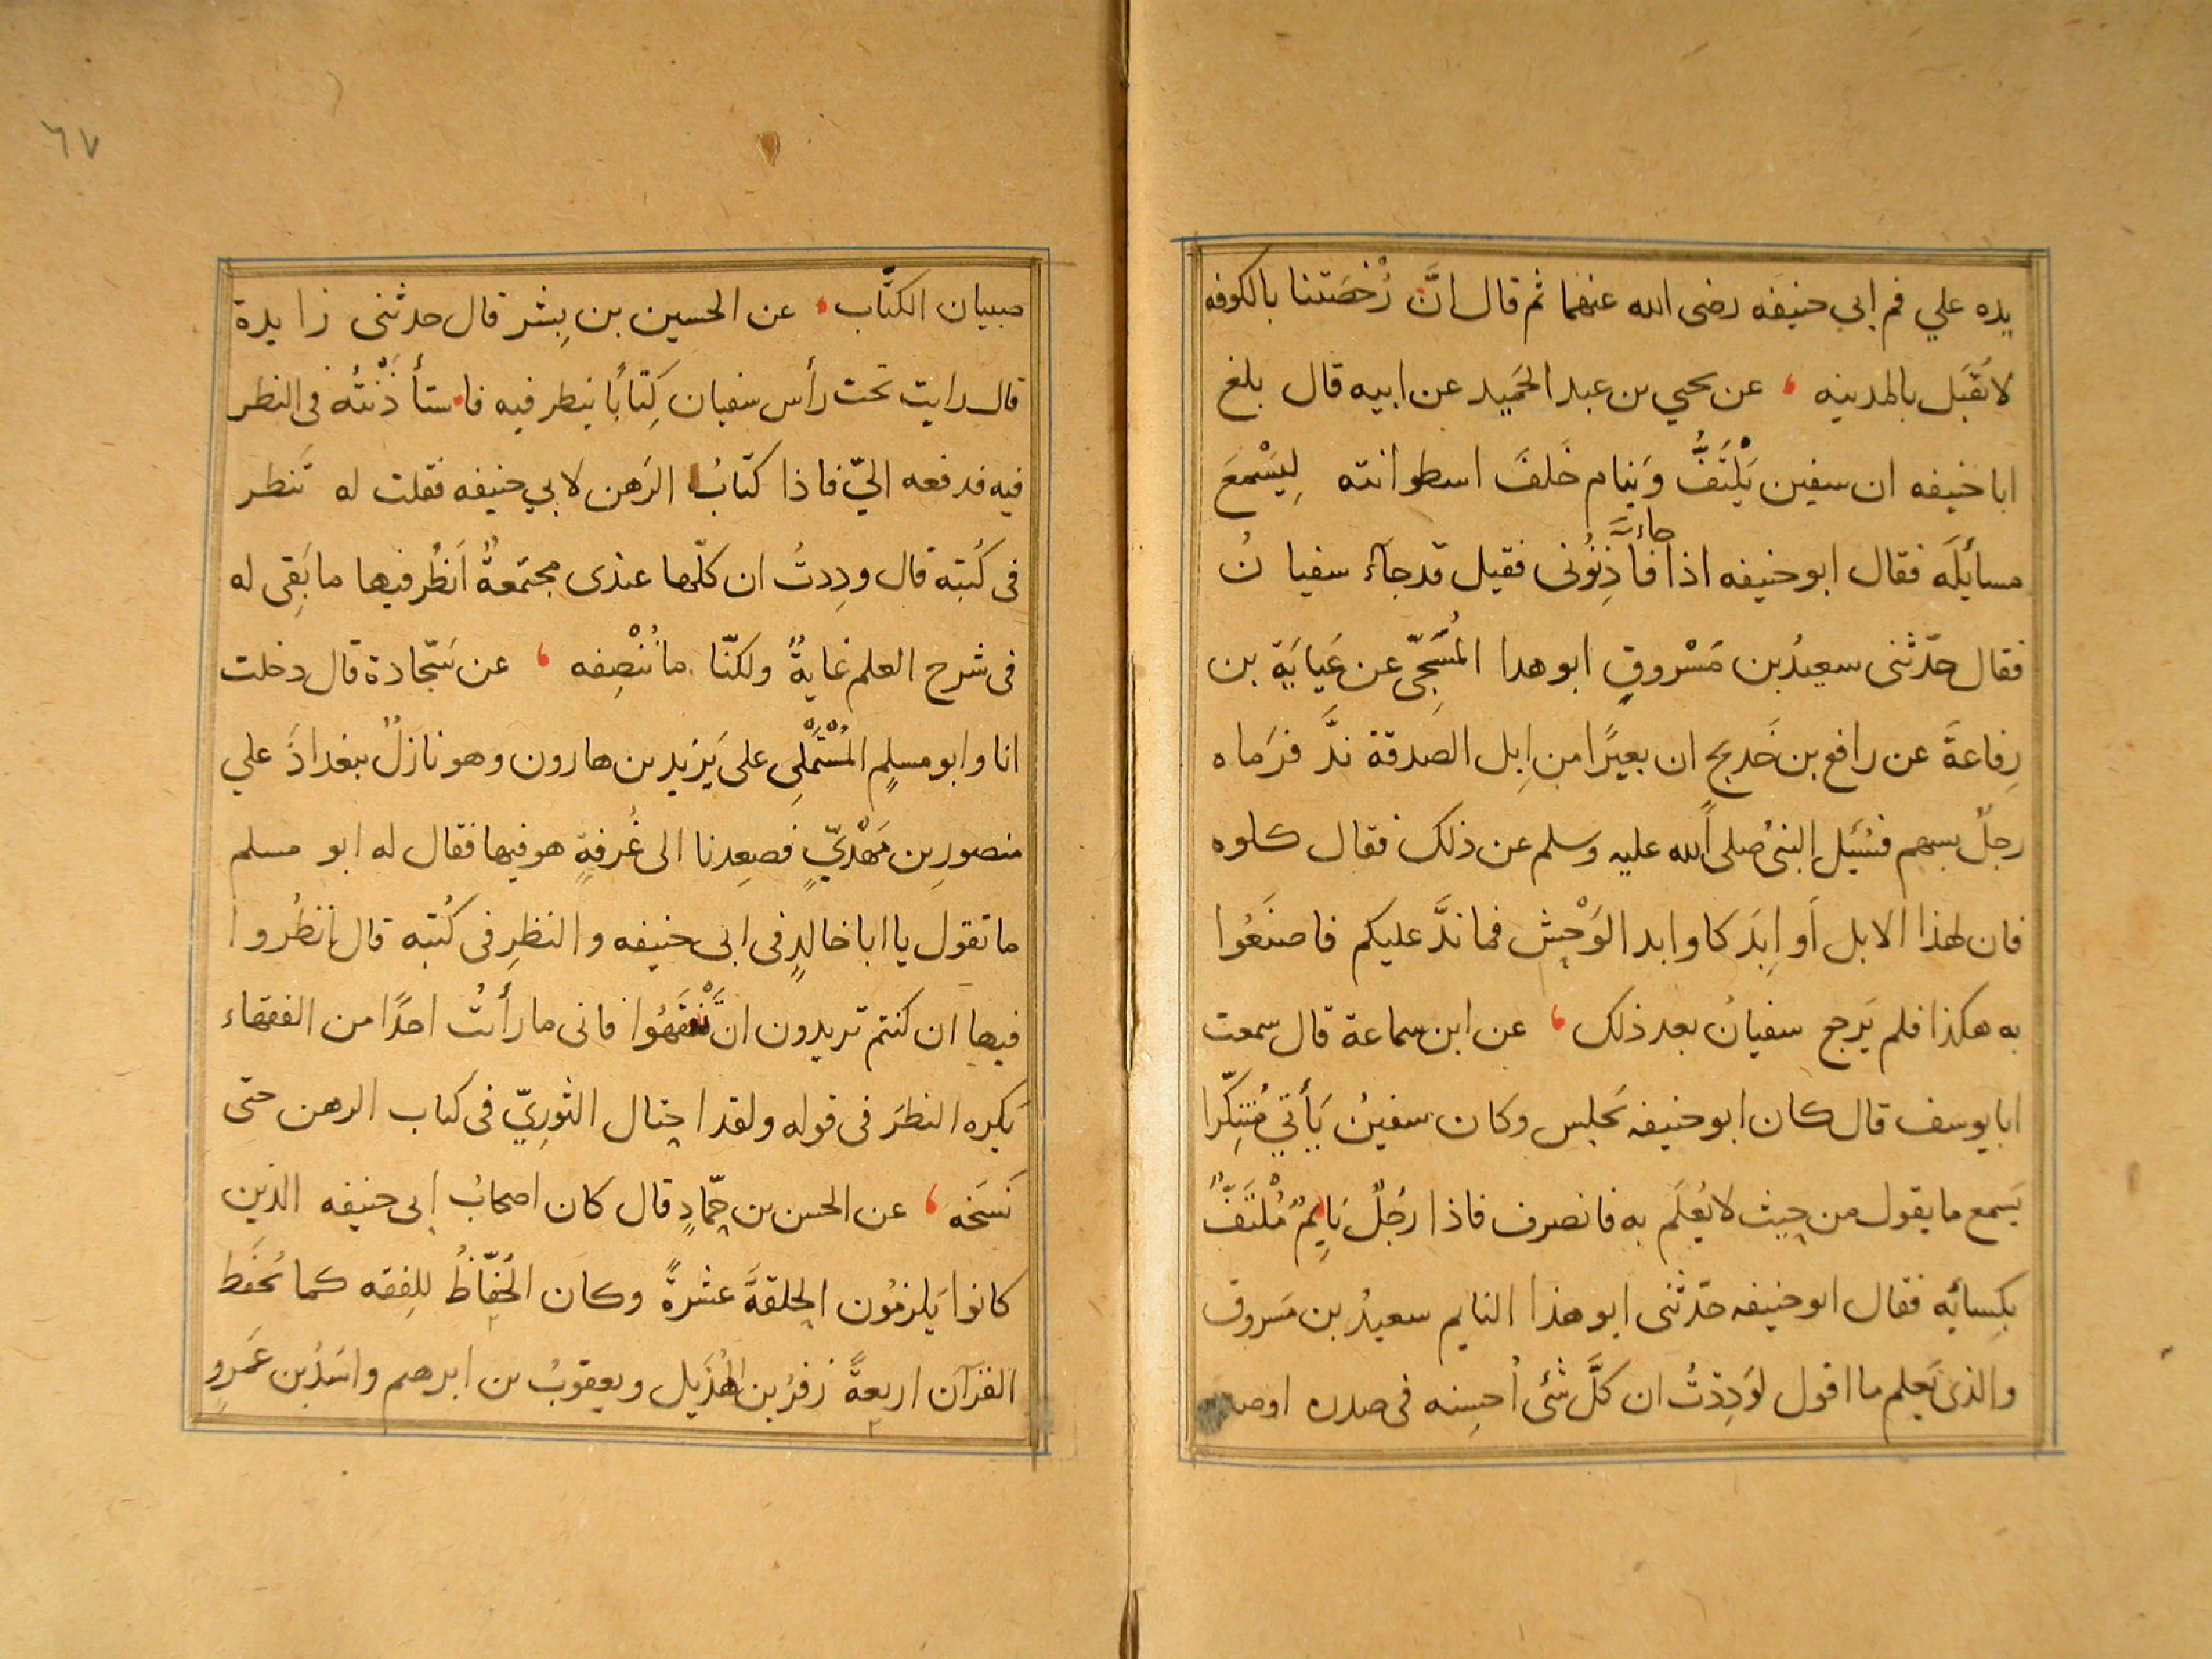 يده علي فم ابي حنيفه رضى الله عنهما ثم قال انَّ رُخصَتنا بالكوفه
لا تُقبَل بالمدينه ، عن يحيي بن عبد الحَميد عن ابيه قال بلغ
ابا حنيفه ان سفين يَلْتَفُّ وَينام خَلفَ اسطوانته لِيَسْمعَ
مسايلَه فقال ابو حنيفه اذا جاء فَاَذِنُونى فقيل قد جآء سفيانُ
فقال حدّثنى سعيدُ بن مَسْروقٍ ابو هذا المُسَجّى عن عَبايَة بن
رِفاعةَ عن رافع بن خَديج ان بعيرًا من اِبل الصَدقة ندَّ فرَماه
رجلٌ بسهم فسُئِل النبىُ صلى الله عليه وسلم عن ذلك فقال كلوه
فان لهذا الابل اَوابِدَ كاوابد الوَحْش فما ندَّ عليكم فاصنَعُوا
به هكذا فلم يَرجع سفيانُ بعد ذلك ، عن ابن سماعة قال سمعت
ابا يوسف قال كان ابو حنيفه يَجلس وكان سفينُ يَأتي مُتَنكِّرا
يَسمع ما يقول من حيث لا يُعلَم به فانصرف فاذا رجُلٌ نَايِمٌ مُلْتَفٌّ
بكِسائه فقال ابو حنيفه حدّثنى ابو هذا النايم سعيدُ بن مَسروق
والذى يَعلم ما اقول لوَدِدْتُ ان كلَّ شئى اُحسِنه فى صدره او صدر
٦٧
صبيان الكتّاب ، عن الحسين بن بِشر قال حدثنى زايدة
قال رايت تحت رأس سفيان كِتابًا ينظر فيه فاستأذَنْتُه فى النظر
فيه فدفعه اليّ فاذا كتابُ الرَهن لابي حنيفه فقلت له تَنظر
فى كُتبه قال ودِدتُ ان كلّها عندى مجتمَعةٌ اَنظُر فيها ما بَقِى له
فى شرح العلم غايةٌ ولكنّا ما نُنْصِفه ، عن سَجّادة قال دخلت
انا وابو مسلمٍ المُسْتَمْلِى على يَزيد بن هارون وهو نازلٌ ببغدادَ علي
منصورِ بن مَهْديٍّ فصعِدنا الى غُرفةٍ هو فيها فقال له ابو مسلم
ما تقول يا ابا خالدٍ فى ابى حنيفه والنظرِ فى كُتبه قال اُنظُروا
فيها ان كنتم تريدون ان تَفْقَهُوا فانى ما رأيتُ احدًا من الفقهاء
يَكره النظرَ فى قوله ولقد احتال الثورِيّ فى كتاب الرهن حتى
نَسَخه ، عن الحسن بن حمّادٍ قال كان اصحابُ ابى حنيفه الذين
كانوا يَلزمُون الحلقةَ عشرةً وكان الحُفّاظُ للِفقه كما تُحفَظ
القرآن اربعةً زفرُ بن الهُذَيل ويعقوبُ بن ابرهيم واسَدُ بن عَمرٍو